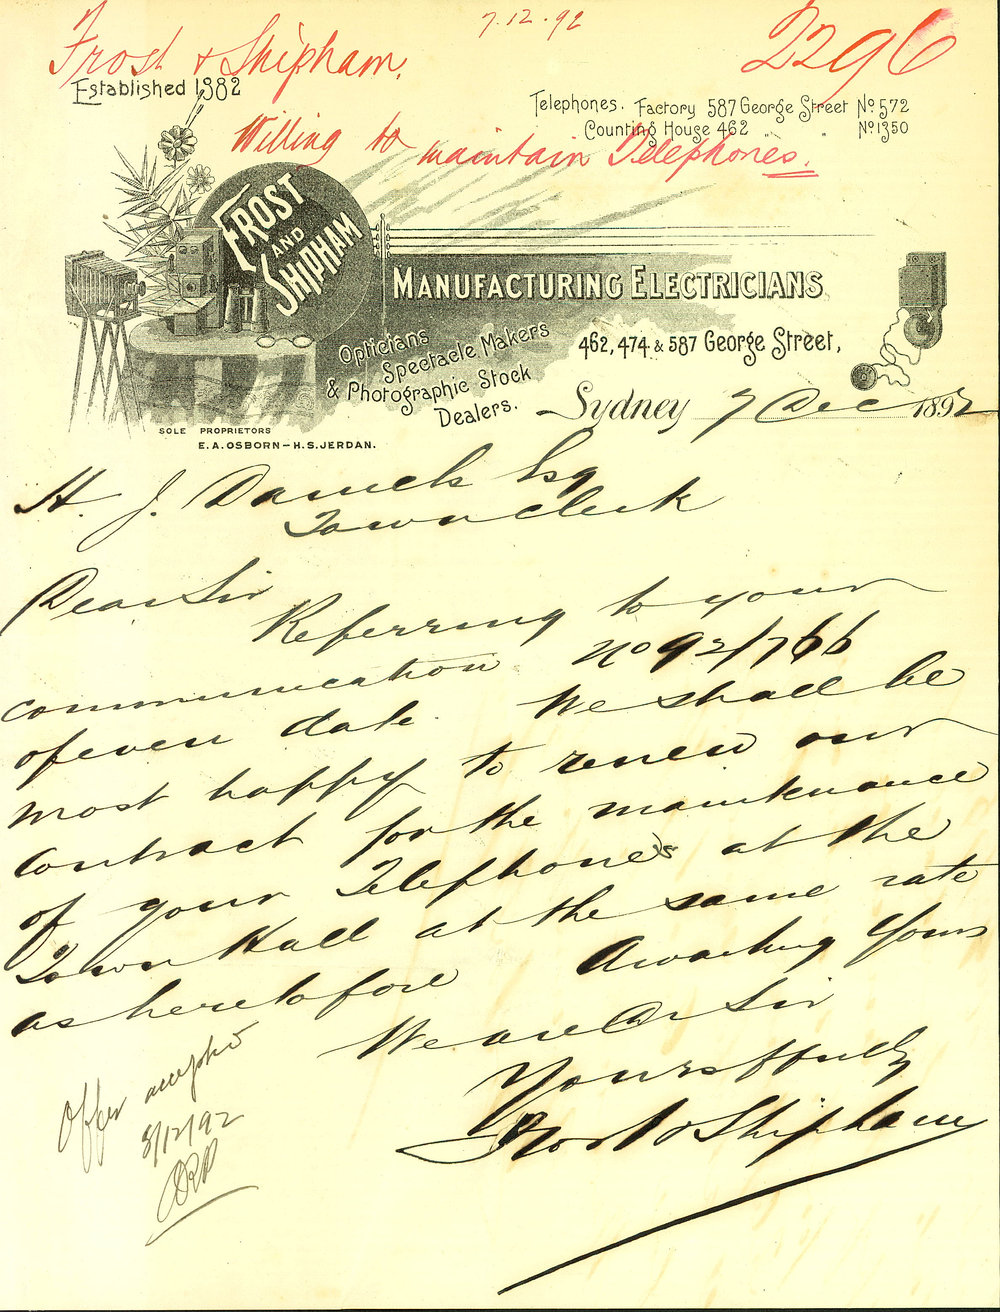 7.12.92
2296
Frost & Shipham.
Established 1882
Telephones. Factory 587 George Street No. 572
Counting House 462 " " No 1350
Willing to maintain Telephones.
FROST AND SHIPHAM
MANUFACTURING ELECTRICIANS
Opticians
Spectacle Makers
& Photographic Stock
Dealers.
462, 474 & 587 George Street,
Sydney 7 Dec 1892
SOLE PROPRIETORS
E.A. OSBORN – H.S. JERDAN.
H. J. Daniels Esq
Town Clerk
Dear Sir
Referring to your
communication No 92/766
of even date. We shall be
most happy to renew our
contract for the maintenance
of your Telephones at the
Town Hall at the same rate
as heretofore Awaiting Yours
We are Dr Sir
Yours ffully
Frost & Shipham
Offer accepted
8/12/92